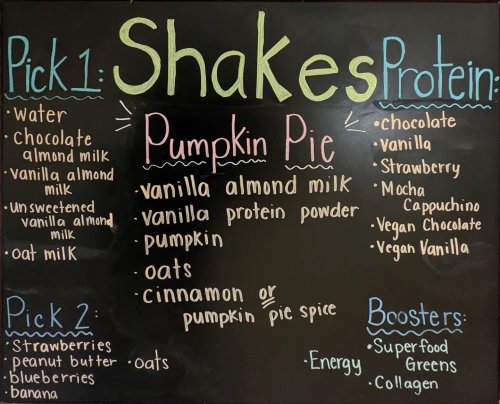 Shakes
Pick 1:
• Water
• Chocolate
almond milk
• vanilla almond
milk
• unsweetened
vanilla almond
milk
• oat milk
Pumpkin Pie
• vanilla almond milk
• vanilla protein powder
• pumpkin
• oats
• cinnamon or
pumpkin pie spice
Protein:
• chocolate
• Vanilla
• Strawberry
• Mocha
Cappuchino
• Vegan Chocolate
• Vegan Vanilla
Pick 2:
• Strawberries
• peanut butter
• blueberries
• banana
• oats
Boosters:
• Energy
• Superfood
Greens
• Collagen